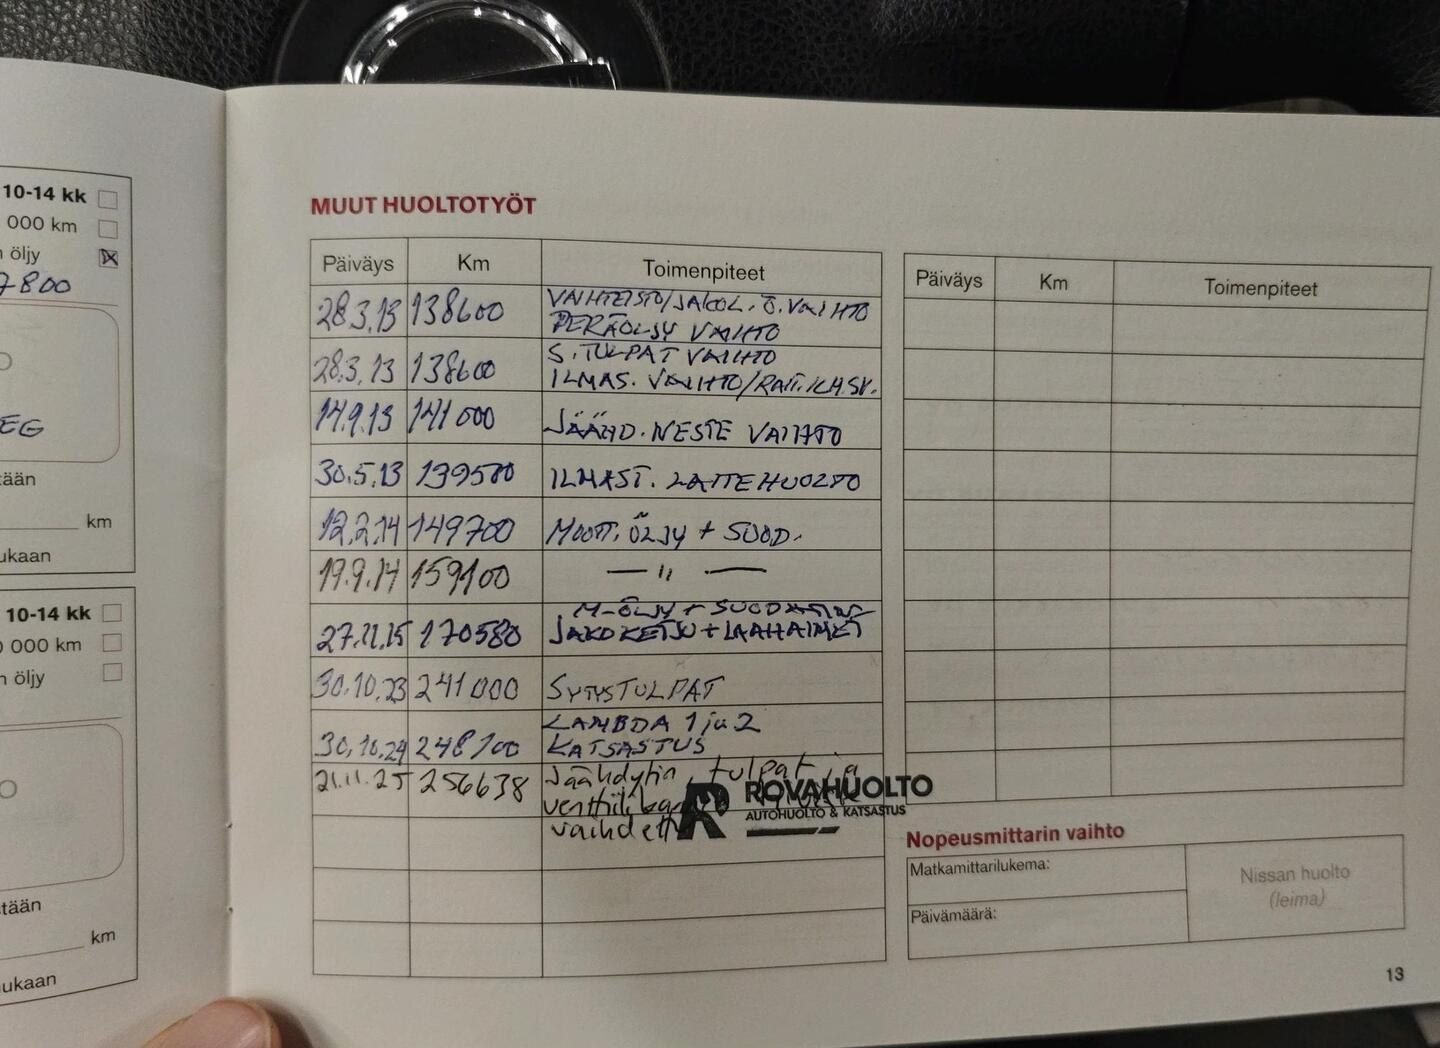 10-14 kk
000 km
n öljy
7800
EG
tään
km
ukaan
10-14 kk
0 000 km
n öljy
tään
km
mukaan
MUUT HUOLTOTYÖT
Päiväys Km Toimenpiteet
28.3.13 138600 VAIHTEISTO/JAKOL.Ö.VAIHTO
PERÄÖLJY VAIHTO
28.3.13 138600 S.TULPAT VAIHTO
ILMAS. VAIHTO/RAIT.ILM.SV.
14.9.13 141000 JÄÄHD.NESTE VAIHTO
30.5.13 139500 ILMAST. LAITEHUOLTO
12.2.14 149700 MOOTT.ÖLJY + SUOD.
19.9.14 159100 — " —
M-ÖLJY + SUODATIN
27.11.15 170580 JAKOKETJU + LAAHAIMET
30.10.23 241000 SYTYSTULPAT
LAMBDA 1 ja 2
30.10.24 248100 KATSASTUS
21.11.25 256638 Jäähdytin, tulpat ja
vaihdettu
ROVAHUOLTO
AUTOHUOLTO & KATSASTUS
Päiväys Km Toimenpiteet
Nopeusmittarin vaihto
Matkamittarilukema:
Päivämäärä:
Nissan huolto
(leima)
13